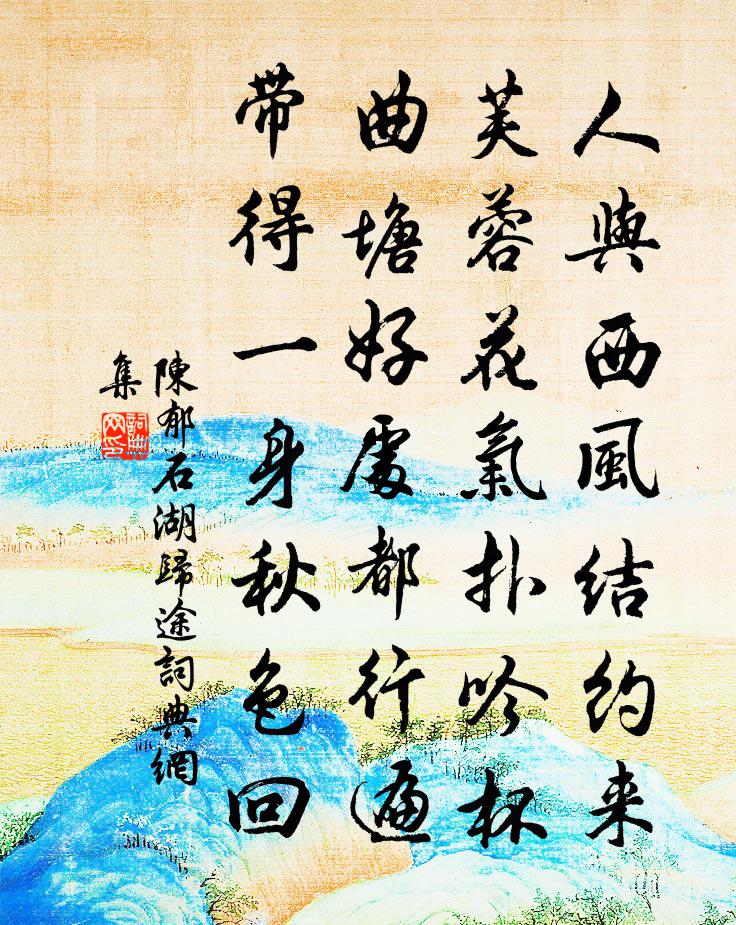 人與西風结约来
芙蓉花氣扑吟杯
曲塘好處都行遍
带得一身秋色回
陳郁石湖歸途詞典網
集
詞典
网印